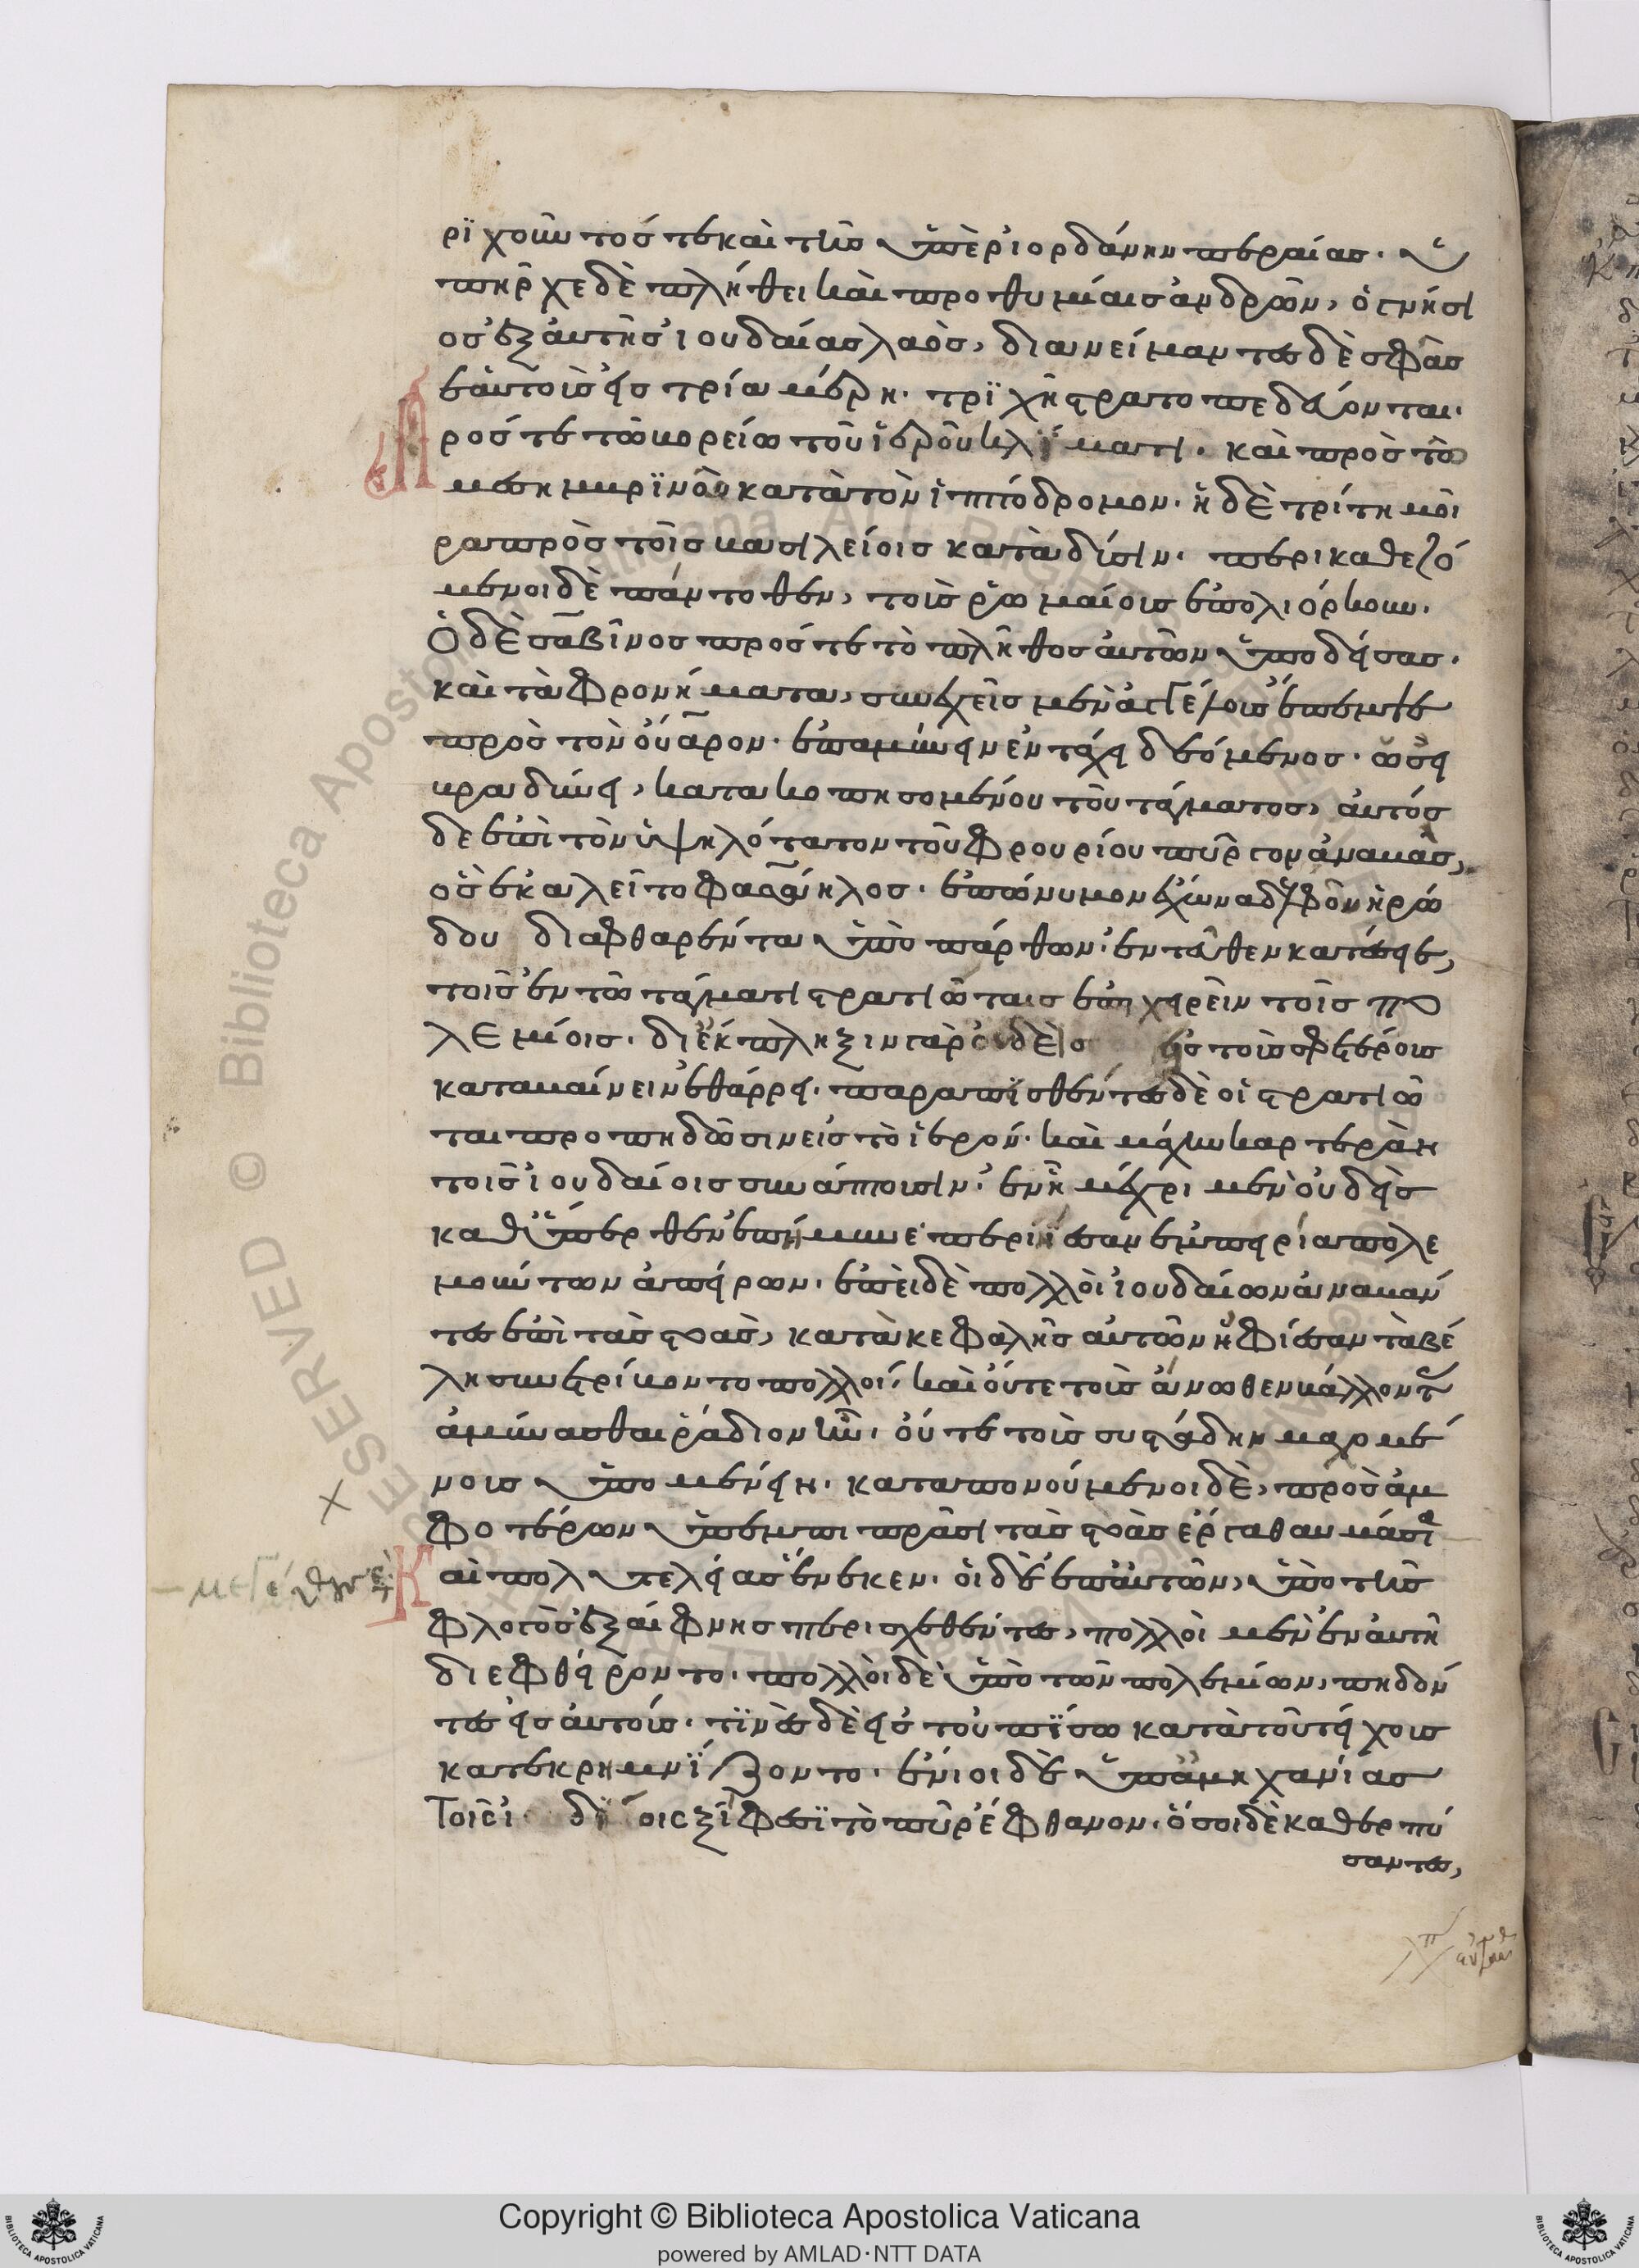 ρϊχοῦντός τε καὶ τῆς ὑπὲρ ἰορδάνην περαίας. ὑ
πῆρχε δὲ πλήθει καὶ προθυμίαις ἀνδρῶν, ὁ γνήσι
ος ἐξ αὐτῆς ἰουδαίας λαός, διανείμαντες δὲ σφᾶς
ἑαυτοὺς εἰς τρία μέρη. τρϊχῆ στρατοπεδεύονται.
πρός τε τῶ βορείω τοῦ ἱεροῦ κλίματι. καὶ πρὸς τὸ
μεσημβρϊνὸν κατὰ τὸν ἱππόδρομον. ἡ δὲ τρίτη μοῖ
ρα πρὸς τοῖς βασιλείοις κατὰ δύσιν. περικαθεζό
μενοι δὲ πάντοθεν, τοὺς ῥωμαίους ἐπολιόρκουν.
Ὁ δὲ σαβῖνος πρός τε τὸ πλῆθος αὐτῶν ὑποδείσας.
καὶ τὰ φρονήματα, συνεχεῖς μὲν ἀγγέλους ἔπεμπε
πρὸς τὸν οὐάρον. ἐπαμύνειν ἐν τάχει δεόμενος. ὡς εἰ
βραδύνει, κατακοπησομένου τοῦ τάγματος, αὐτὸς
δε ἐπὶ τὸν ὑψηλότατον τοῦ φρουρίου πῦργον ἀναβὰς,
ὃς ἐκαλεῖτο φασάηλος. ἐπώνυμον ἔχων ἀδελφὸν ἡρώ
δου διαφθαρέντα ὑπὸ πάρθων. ἐντεῦθεν κατέσειε,
τοῖς ἐν τῶ τάγματι στρατιώταις ἐπιχειρεῖν τοῖς πο
λεμίοις. δι' ἔκπληξιν γὰρ οὐδὲ εἰς τοὺς σφετέρους
καταβαίνειν ἐθάρρει. παραπϊσθέντες δὲ οἱ στρατιῶ
ται προπηδῶσιν εἰς τὸ ἱερόν. καὶ μάχην καρτερὰν
τοῖς ἰουδαίοις συνάπτουσιν. ἐν ἧ μέχρι μὲν οὐδεὶς
καθύπερθεν ἐπήμυνε περιῆσαν ἐμπειρία πολε
μούντων ἀπείρων. ἐπεὶ δὲ πολλοὶ ἰουδαίων ἀναβάν
τες ἐπὶ τὰς στοὰς, κατὰ κεφαλῆς αὐτῶν ἠφίεσαν τὰ βέ
λη συνετρίβοντο πολλοί, καὶ οὔτε τοὺς ἄνωθεν βάλλοντας
ἀμύνασθαι ῥάδιον ἦν. οὔτε τοὺς συστάδην μαχομέ
νους ὑπομένειν. καταπονούμενοι δὲ, πρὸς ἀμ
φοτέρων ὑπεμπιπρᾶσι τὰς στοὰς ἔργα θαυμάσια
καὶ πολυτελείας ἕνεκεν. οἱ δ' ἐπ' αὐτῶν, ὑπὸ τῆς
μεγέθους τε
φλογὸς ἐξαίφνης περισχεθέντες, πολλοὶ μὲν ἐν αὐτῆ
διεφθείροντο. πολλοὶ δὲ ὑπὸ τῶν πολεμίων, πηδῶν
τες εἰς αὐτούς. τϊνὲς δὲ εἰς τοὐπίσω κατὰ τοῦ τείχους
κατεκρημνϊζοντο. ἔνιοι δὲ ὑπ' ἀμηχανίας
τοῖς ἰδίοις ξίφεσϊ τὸ πῦρ ἔφθανον. ὅσοι δὲ καθερπύ
σαντες,